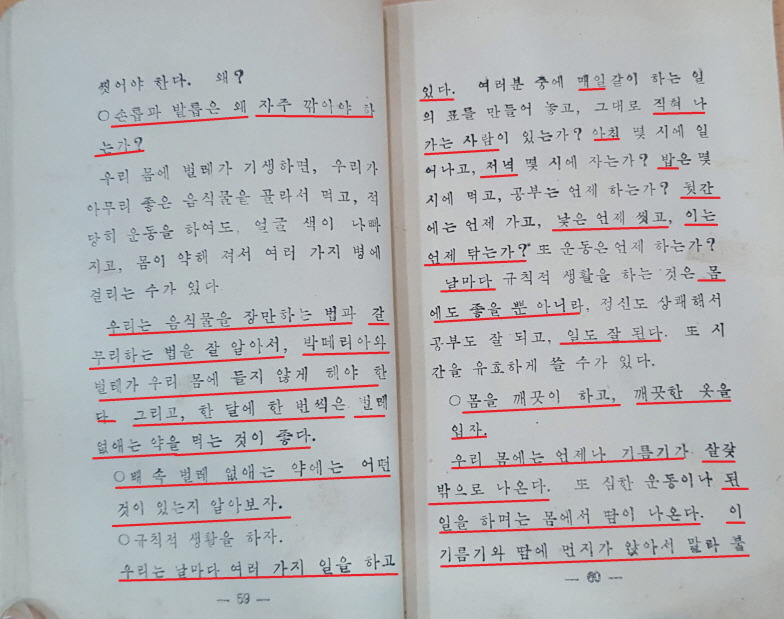 씻어야 한다. 왜?
○손톱과 발톱은 왜 자주 깎아야 하
는가?
우리 몸에 벌레가 기생하면, 우리가
아무리 좋은 음식물을 골라서 먹고, 적
당히 운동을 하여도, 얼굴 색이 나빠
지고, 몸이 약해 져서 여러 가지 병에
걸리는 수가 있다.
우리는 음식물을 장만하는 법과 갈
무리하는 법을 잘 알아서, 박테리아와
벌레가 우리 몸에 들지 않게 해야 한
다. 그리고, 한 달에 한 번씩은 벌레
없애는 약을 먹는 것이 좋다.
○배 속 벌레 없애는 약에는 어떤
것이 있는지 알아보자.
○규칙적 생활을 하자.
우리는 날마다 여러 가지 일을 하고
— 59 —
있다. 여러분 중에 매일같이 하는 일
의 표를 만들어 놓고, 그대로 직혀 나
가는 사람이 있는가? 아침 몇 시에 일
어나고, 저녁 몇 시에 자는가? 밥은 몇
시에 먹고, 공부는 언제 하는가? 뒷간
에는 언제 가고, 낯은 언제 씻고, 이는
언제 닦는가? 또 운동은 언제 하는가?
날마다 규칙적 생활을 하는 것은 몸
에도 좋을 뿐 아니라, 정신도 상쾌해서
공부도 잘 되고, 일도 잘 된다. 또 시
간을 유효하게 쓸 수가 있다.
○몸을 깨끗이 하고, 깨끗한 옷을
입자.
우리 몸에는 언제나 기름기가 살갗
밖으로 나온다. 또 심한 운동이나 된
일을 하며는 몸에서 땀이 나온다. 이
기름기와 땀에 먼지가 앉아서 말라 붙
— 60 —